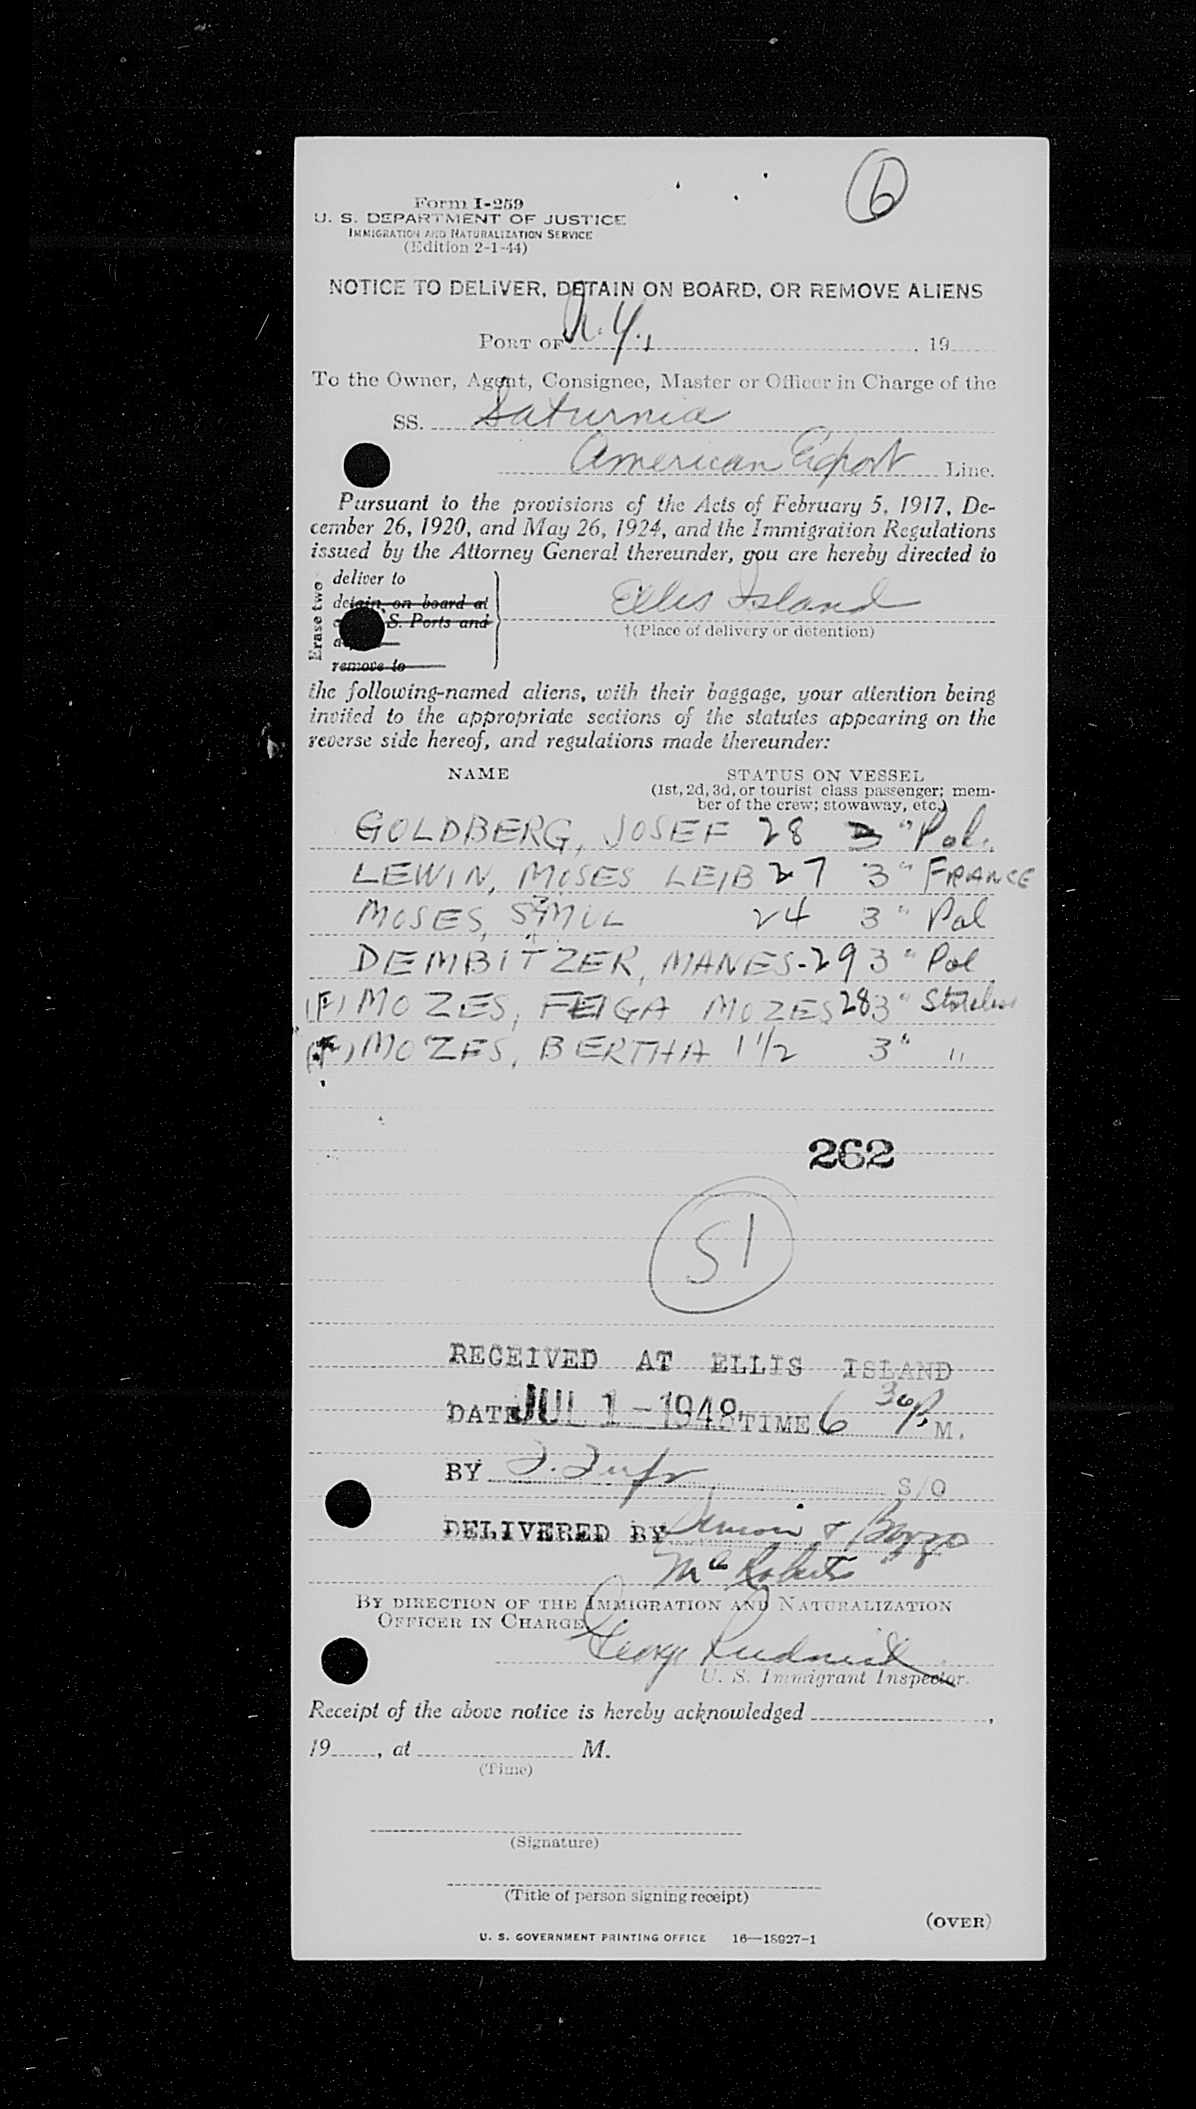 6
Form I-259
U. S. DEPARTMENT OF JUSTICE
IMMIGRATION AND NATURALIZATION SERVICE
(Edition 2-1-44)
NOTICE TO DELIVER, DETAIN ON BOARD, OR REMOVE ALIENS
PORT OF N.Y., , 19
To the Owner, Agent, Consignee, Master or Officer in Charge of the
SS. Saturnia
American Export Line.
Pursuant to the provisions of the Acts of February 5, 1917, De-
cember 26, 1920, and May 26, 1924, and the Immigration Regulations
issued by the Attorney General thereunder, you are hereby directed to
Erase two
deliver to
detain on board at
S. Ports and
remove to
Ellis Island
†(Place of delivery or detention)
the following-named aliens, with their baggage, your attention being
invited to the appropriate sections of the statutes appearing on the
reverse side hereof, and regulations made thereunder:
NAME STATUS ON VESSEL
(1st, 2d, 3d, or tourist class passenger; mem-
ber of the crew; stowaway, etc.)
GOLDBERG, JOSEF 28 3 " Pol.
LEWIN, MOSES LEIB 27 3 " FRANCE
MOSES, 24 3 " Pol
DEMBITZER, MANES - 29 3 " Pol
(F) MOZES, FEIGA MOZES 28 3 " Stateless
(F) MOZES, BERTHA 1 1/2 3 " "
262
51
RECEIVED AT ELLIS ISLAND
DATE JUL 1 - 1948 TIME 6 30 P. M.
BY S/O
DELIVERED BY & Bozzo
McRoberts
BY DIRECTION OF THE IMMIGRATION AND NATURALIZATION
OFFICER IN CHARGE
George Rudnick
U. S. Immigrant Inspector.
Receipt of the above notice is hereby acknowledged ,
19 , at M.
(Time)
(Signature)
(Title of person signing receipt)
(OVER)
U. S. GOVERNMENT PRINTING OFFICE 16—18927-1